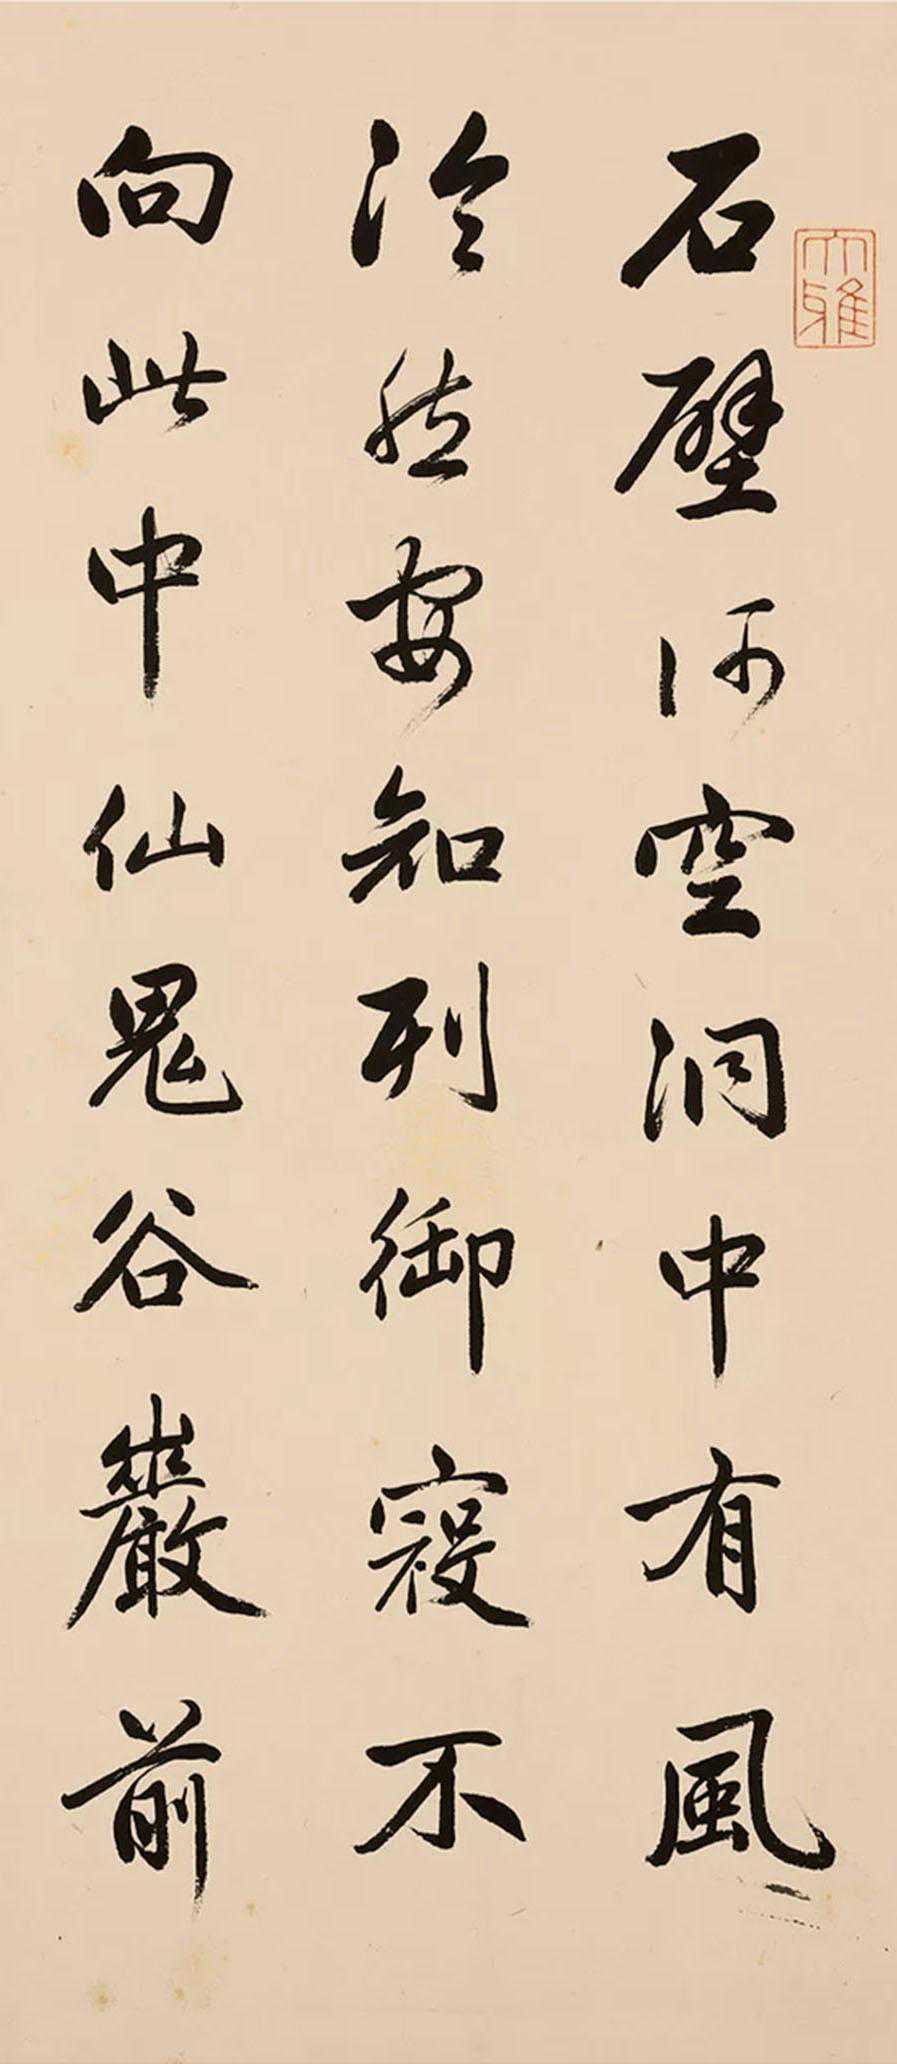 石壁何空洞中有風
泠然安知列御寇不
向此中仙鬼谷巖前
大雅